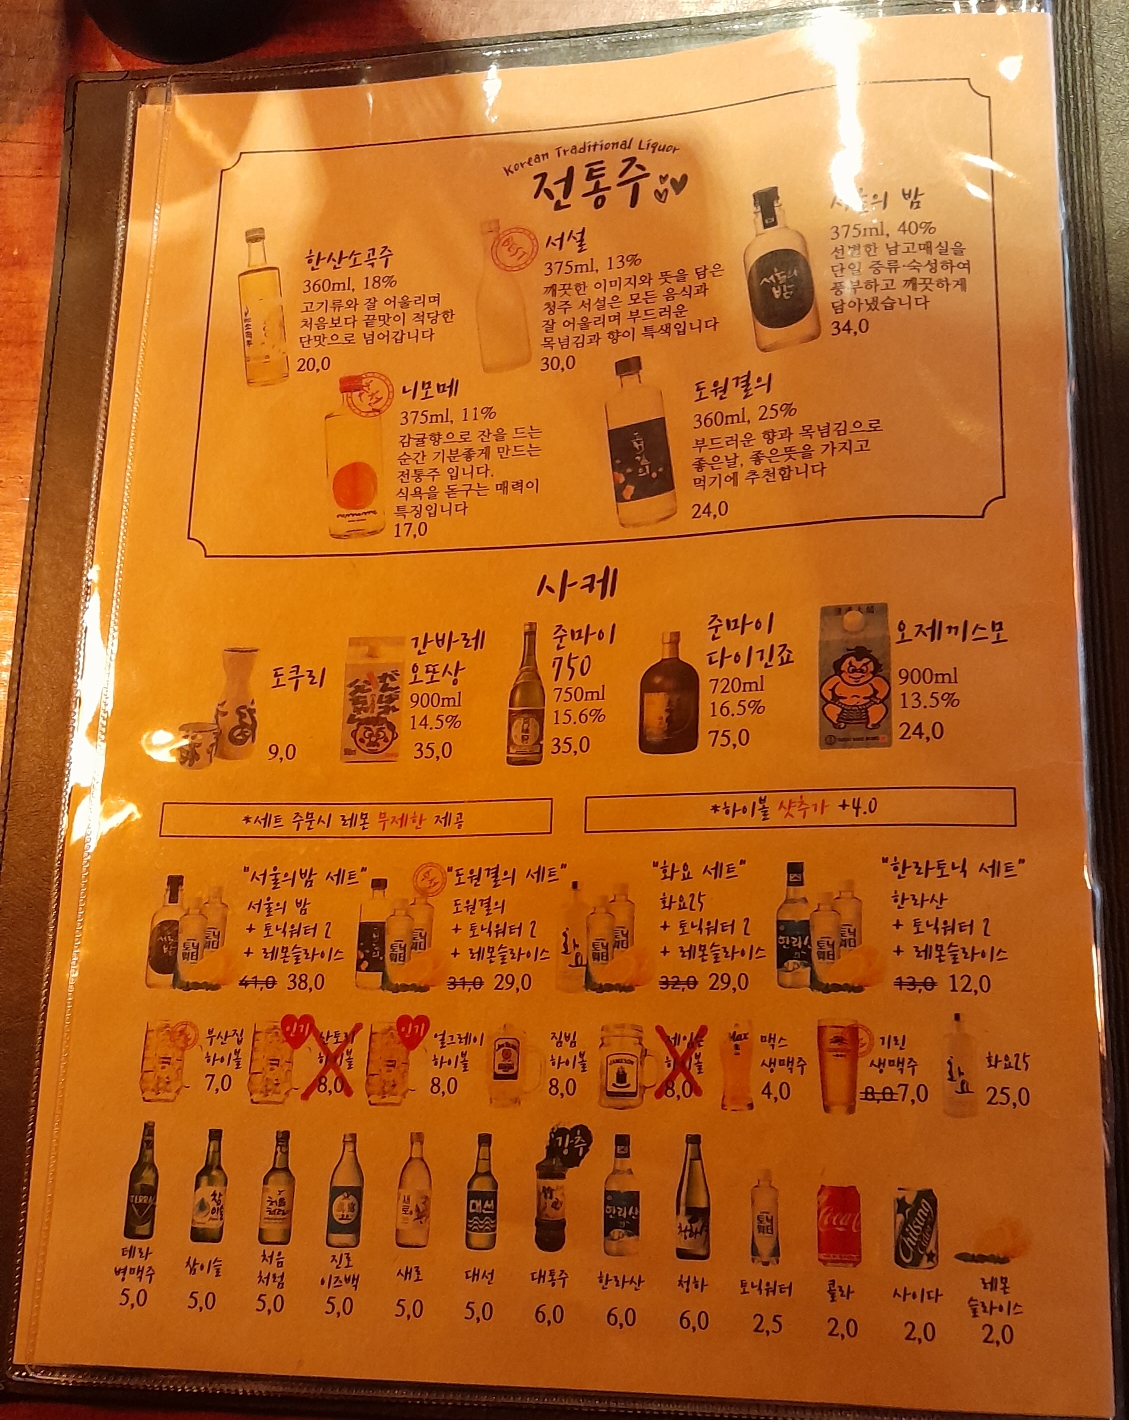 Korean Traditional Liquor
전통주
한산소곡주
360ml, 18%
고기류와 잘 어울리며
처음보다 끝맛이 적당한
단맛으로 넘어갑니다
20,0
BEST
서설
375ml, 13%
깨끗한 이미지와 뜻을 담은
청주 서설은 모든 음식과
잘 어울리며 부드러운
목넘김과 향이 특색입니다
30,0
서울의 밤
서울의 밤
375ml, 40%
선별한 남고매실을
단일 증류·숙성하여
풍부하고 깨끗하게
담아냈습니다
34,0
니모메
375ml, 11%
감귤향으로 잔을 드는
순간 기분좋게 만드는
전통주 입니다.
식욕을 돋구는 매력이
특징입니다
17,0
도원결의
360ml, 25%
부드러운 향과 목넘김으로
좋은날, 좋은뜻을 가지고
먹기에 추천합니다
24,0
사케
도쿠리
9,0
간바레
오또상
900ml
14.5%
35,0
준마이
750
750ml
15.6%
35,0
준마이
다이긴죠
720ml
16.5%
75,0
오제끼스모
900ml
13.5%
24,0
*세트 주문시 레몬 무제한 제공
*하이볼 샷추가 +4.0
"서울의밤 세트"
서울의 밤
+ 토닉워터 2
+ 레몬슬라이스
41,0 38,0
"도원결의 세트"
도원결의
+ 토닉워터 2
+ 레몬슬라이스
31,0 29,0
"화요 세트"
화요25
+ 토닉워터 2
+ 레몬슬라이스
32,0 29,0
"한라토닉 세트"
한라산
+ 토닉워터 2
+ 레몬슬라이스
13,0 12,0
부산집
하이볼
7,0
인기
산토리
하이볼
8,0
인기
얼그레이
하이볼
8,0
짐빔
하이볼
8,0
JAMESON
8,0
Max
맥스
생맥주
4,0
기린
생맥주
8,0 7,0
화요
화요25
25,0
TERRA
테라
병맥주
5,0
참이슬
참이슬
5,0
처음처럼
처음
처럼
5,0
진로
이즈백
5,0
새로
새로
5,0
대선
대선
5,0
강추
대통주
6,0
한라산
한라산
6,0
청하
청하
6,0
토닉워터
토닉워터
2,5
Coca
콜라
2,0
Chilsung Cider
사이다
2,0
레몬
슬라이스
2,0